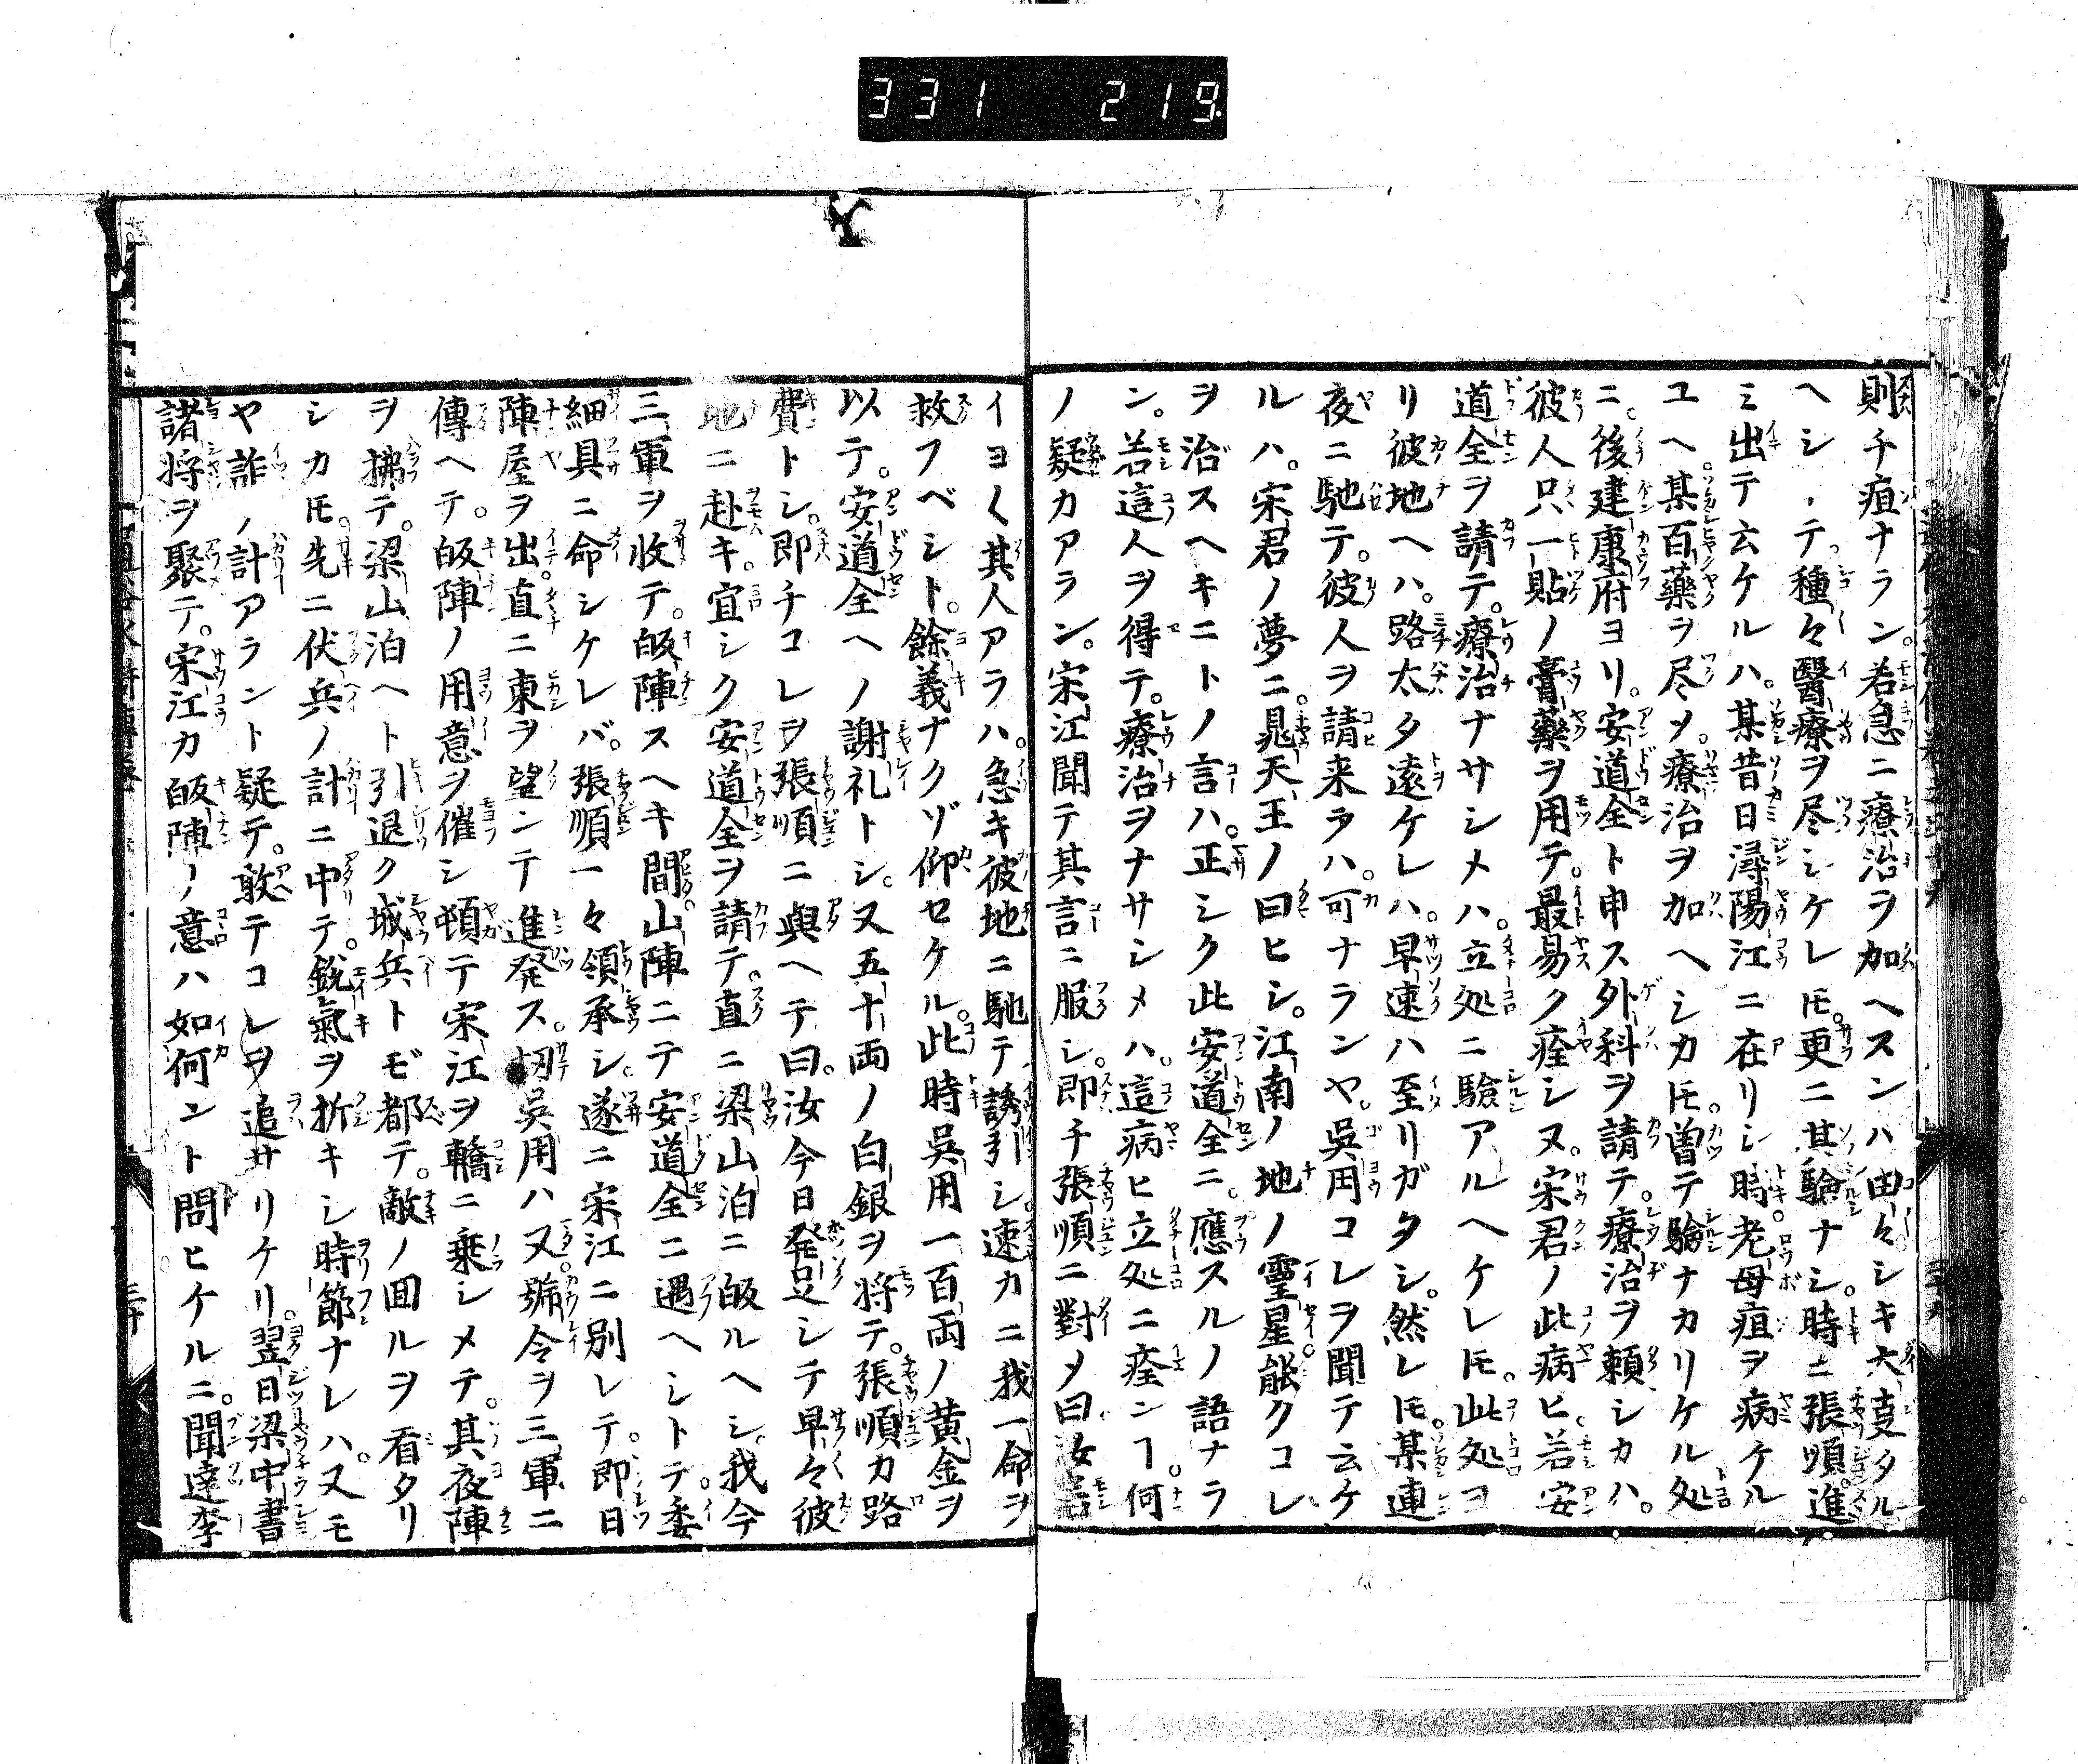 331 219
則チ疽ナラン。若急ニ療治ヲ加ヘスンハ由々シキ大叓タル
ヘシヽテ種々醫療ヲ尽シケレ𪜈。更ニ其驗ナシ。時ニ張順進
ミ出テ云ケルハ。某昔日潯陽江ニ在リシ時老母疽ヲ病ケル
ユヘ。某百藥ヲ尽メ。療治ヲ加ヘシカ𪜈。曽テ驗ナカリケル処
ニ。後建康府ヨリ。安道全ト申ス外科ヲ請テ。療治ヲ頼シカハ。
彼人只一貼ノ膏藥ヲ用テ。最易ク痊シヌ。宋君ノ此病ヒ。若安
道全ヲ請テ。療治ナサシメハ。立処ニ驗アルヘケレ𪜈。此処ヨ
リ彼地ヘハ。路太タ遠ケレハ。早速ハ至リガタシ。然レ𪜈。某連
夜ニ馳テ。彼人ヲ請来ラハ。可ナランヤ。吳用コレヲ聞テ云ケ
ルハ。宋君ノ夢ニ。晁天王ノ曰ヒシ。江南ノ地ノ霊星能クコレ
ヲ治スヘキニトノ言ハ。正シク此安道全ニ。應スルノ語ナラ
ン。若這人ヲ得テ。療治ヲナサシメハ。這病ヒ立処ニ痊ンヿ。何
ノ疑カアラン。宋江聞テ其言ニ服シ。即チ張順ニ對メ曰汝
イヨ〱其人アラハ。急キ彼地ニ馳テ誘引シ。速カニ我一命ヲ
救フベシト。餘義ナクゾ仰セケル。此時吳用一百両ノ黄金ヲ
以テ。安道全ヘノ謝礼トシ。又五十両ノ白銀ヲ将テ。張順カ路
費トシ。即チコレヲ張順ニ與ヘテ曰。汝今日発足シテ早々彼
地ニ赴キ。宜シク安道全ヲ請テ。直ニ梁山泊ニ皈ルヘシ。我今
三軍ヲ收テ。皈陣スヘキ間。山陣ニテ安道全ニ遇ヘシトテ。委
細具ニ命シケレバ。張順一々領承シ。遂ニ宋江ニ別レテ。即日
陣屋ヲ出。直ニ東ヲ望ンテ進発ス。扨吳用ハ又。號令ヲ三軍ニ
傳ヘテ。皈陣ノ用意ヲ催シ頓テ宋江ヲ轎ニ乗シメテ。其夜陣
ヲ拂テ。梁山泊ヘト引退ク城兵トモ都テ。敵ノ囬ルヲ看タリ
シカ𪜈。先ニ伏兵ノ計ニ中テ。鋭氣ヲ折キシ時節ナレハ。又モ
ヤ詐ノ計アラント疑テ。敢テコレヲ追サリケリ。翌日梁中書
諸将ヲ聚テ。宋江カ皈陣ノ意ハ如何ント問ヒケルニ。聞達李